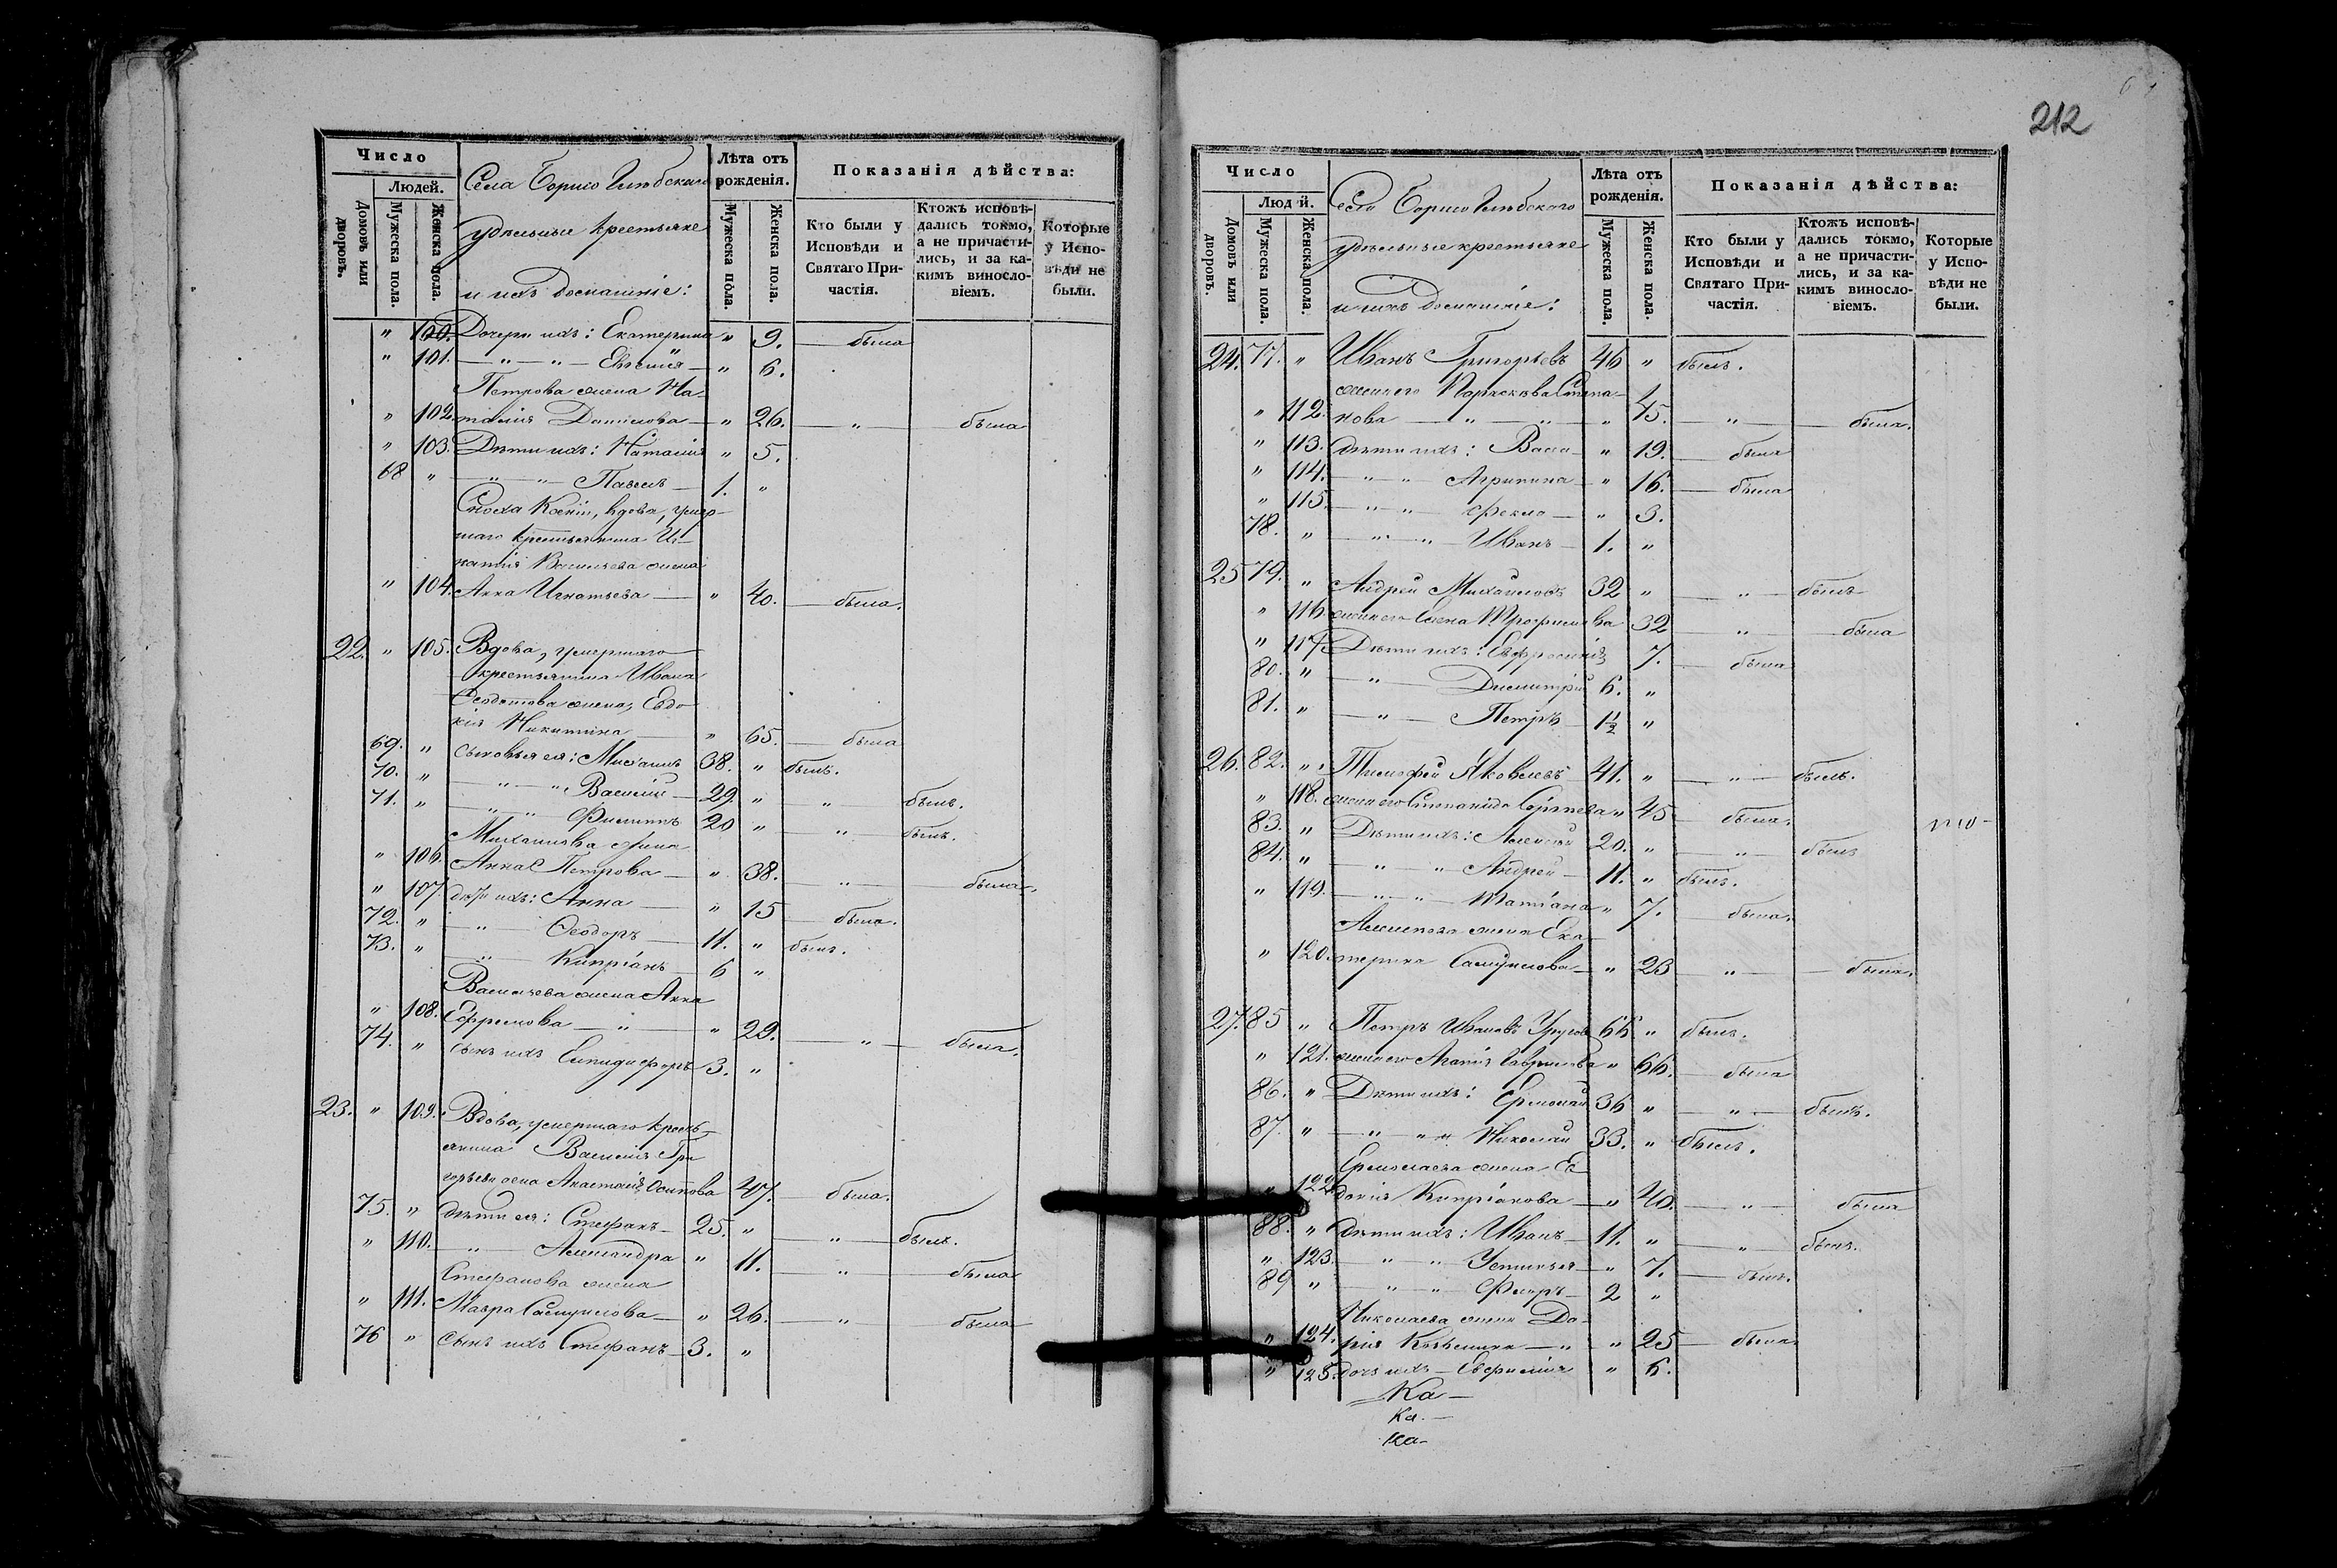 Число
Людей.
Домовъ или дворовъ.
Мужеска пола.
Женска пола.
Села Борисо Глѣбскаго
удѣльные крестьяне
и ихъ домашніе:
Лѣта отъ рожденія.
Мужеска пола.
Женска пола.
Показанія дѣйства:
Кто были у Исповѣди и Святаго Причастія.
Ктожъ исповѣ-дались токмо, а не причасти-лись, и за ка-кимъ винослo-віемъ.
Которые у Испо-вѣди не были.
" 100. Дочери ихъ: Екатерина " 9. была
" 101. " " Евгенія " 6.
Петрова жена На-
" 102. талія Данилова " 26. " была
" 103. Дѣти ихъ: Наталія " 5.
68 " " " Павелъ 1. "
Сноха Ксеніи, вдова, умер-
шаго крестьянина Иг-
натія Васильева жена
" 104. Анна Игнатьева " 40. была.
22. " 105. Вдова, умершаго
крестьянина Ивана
Ѳеодотова жена, Евдо-
кія Никитина " 65. была
69. " сыновья ея: Михаилъ 38. " былъ.
70. " " " Василій 29. " " былъ.
71. " " " Филиппъ 20 " " былъ.
Михаилова жена
" 106. Анна Петрова " 38. " была.
" 107. дѣти ихъ: Анна " 15 была.
72. " " Ѳеодоръ 11. " былъ.
73. " " Кипріанъ 6 "
Васильева жена Анна
" 108. Ефремова " " 29. " была.
74. " сынъ ихъ Епидифоръ 3. "
23. " 109. Вдова, умершаго кресть-
янина Василія Гри-
горьева жена Анастасія Осипова 47. была.
75. " дѣти ея: Стефанъ 25. " " былъ.
" 110. " Александра " 11. " была
Стефанова жена
" 111. Мавра Самуилова " 26. " была
76 " сынъ ихъ Стефанъ 3. "
212
Число
Людей.
Домовъ или дворовъ.
Мужеска пола.
Женска пола.
Села Борисо Глѣбскаго
удѣльные крестьяне
и ихъ домашніе:
Лѣта отъ рожденія.
Мужеска пола.
Женска пола.
Показанія дѣйства:
Кто были у Исповѣди и Святаго При-частія.
Ктожъ исповѣ-дались токмо, а не причасти-лись, и за ка-кимъ винослo-віемъ.
Которые у Испо-вѣди не были.
24. 77. " Иванъ Григорьевъ 46 " былъ.
жена его Параскева Степа-
" 112. нова " " " 45. " была.
" 113. дѣти ихъ: Васса " 19. была
" 114. " " Агрипина " 16. была
" 115. " " Фекла " 3.
78. " " " Иванъ 1. "
25 79. " Андрей Михайловъ 32 " " былъ
" 116 жена его Елена Трофимова 32 " была
" 117. Дѣти ихъ: Евфросинія 7. была
80. " " Димитрій 6. "
81. " " Петръ 1½ "
26. 82. " Тимофей Яковлевъ 41. " " былъ.
" 118. жена его Степанида Сергѣева " 45 была.
83. " Дѣти ихъ: Алексѣй 20. " " былъ
84. " " " Андрей 11. " былъ.
" 119. " " Татіана " 7. была.
Алексѣева жена Ека-
" 120. терина Самуилова " 23 " была.
27. 85 " Петръ Ивановъ 66 " былъ.
" 121. жена его Агапія Гавриилова " 66. была
86. " Дѣти ихъ: Ермолай 36 " " былъ.
87. " " " Николай 33. " былъ.
Ермолаева жена Ев-
" 122. докія Кипріанова " 40. " была
88. " дѣти ихъ: Иванъ 11. " " былъ.
" 123. " " Устинья " 7. была.
89 " " " Флоръ 2 "
Николаева жена Да-
" 124. рія Козьмина " " 25 была.
" 125. дочь ихъ Евфимія " 6.
Ка-
Ка.-
Ка-